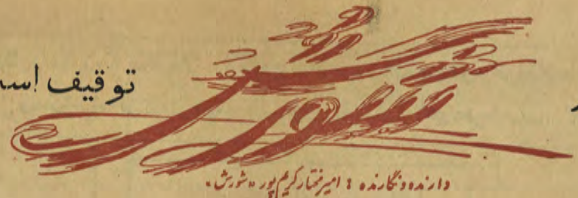 شورش
توقیف اسـ
دارنده و نگارنده : امیرمختار کریم پور «شورش»